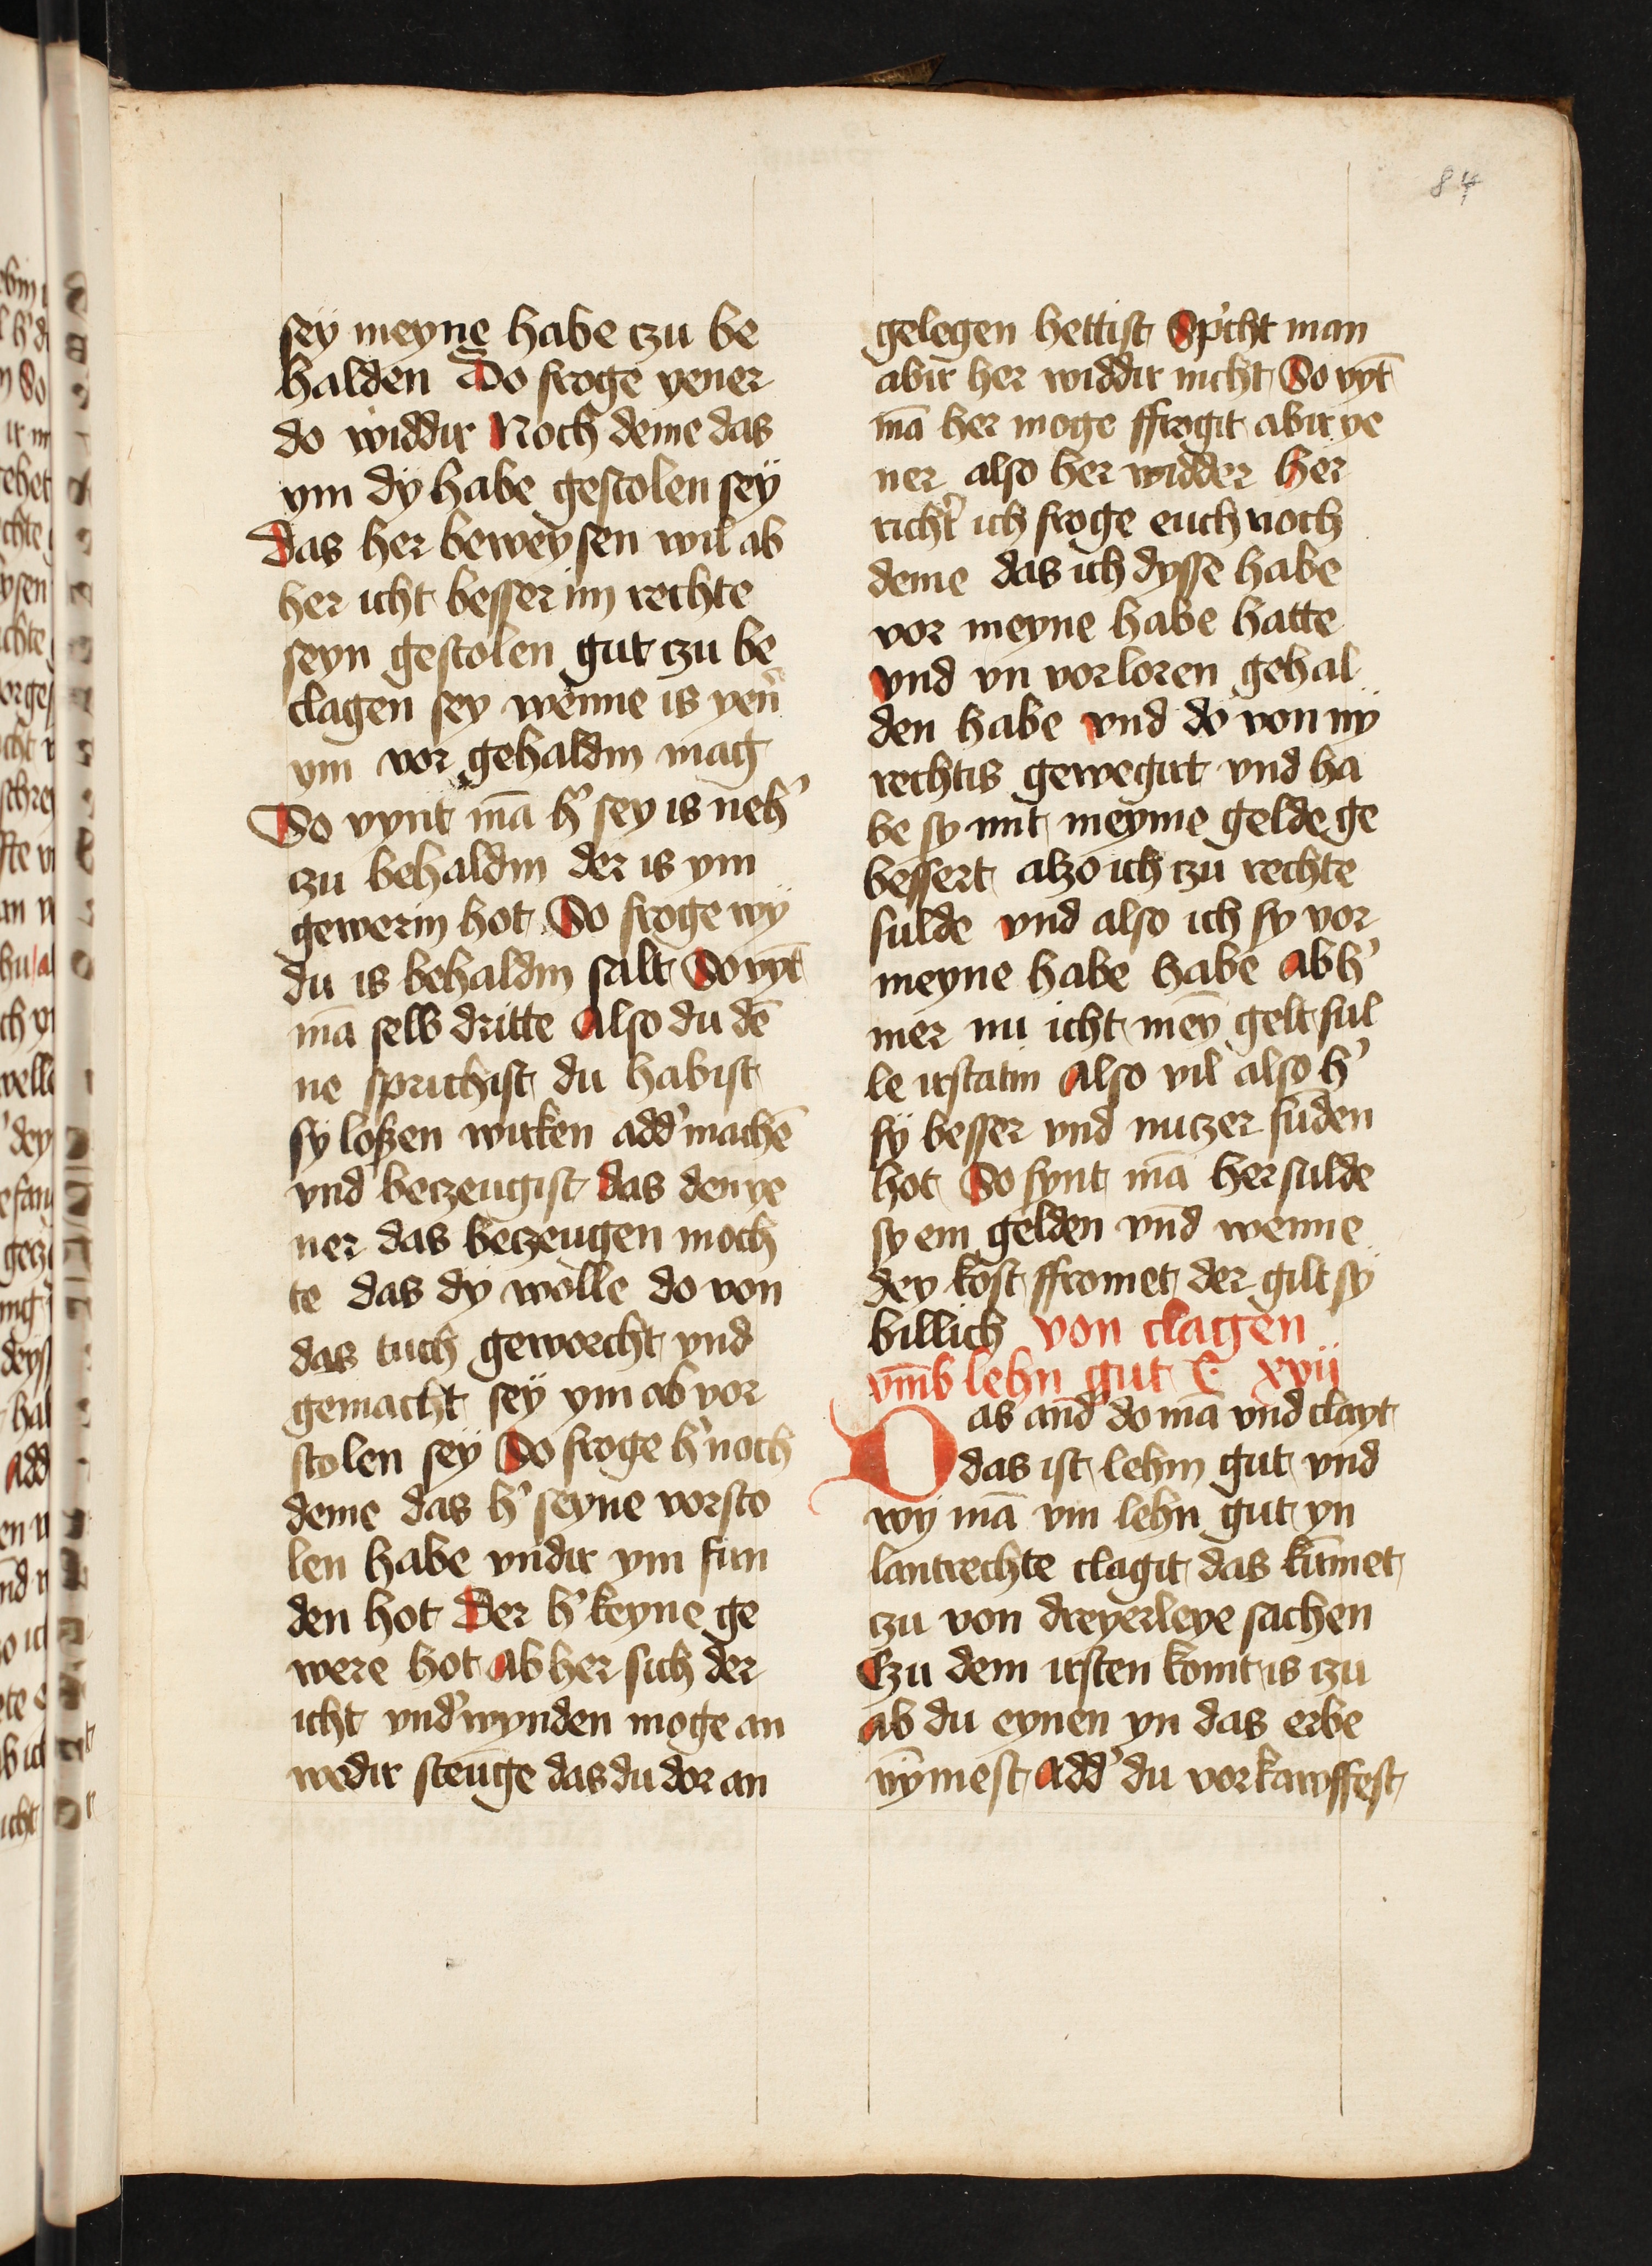 84
sey meyne habe czu be
halden Do froge yener
do widdir Noch deme das
ym dy habe gestolen sey
Das her beweysen wil ab
her icht besser im rechte
seyn gestolen gut czu be
clagen sey wenne is yen̄
ym vor gehaldin mag
So vynt mā h' sey is neh'
czu behaldin der is ym
gewerin hot So froge wy
du is behaldin salt So vyt̄
mā selb dritte Also du dē
ne sprichist du habist
sy loßen wirken add' machē
vnd beczeugist das den ye
ner das beczeugen moch
te das dy wolle do von
das tuch geworcht vnd
gemacht sey ym ab vor
stolen sey So froge h' noch
deme das h' seyne vorsto
len habe vndir ym fun
den hot Der h' keyne ge
were hot Ab her sich der
icht vnd'wynden moge an
wedir steunge das du dor an
gelegen hettist Sp'cht man
abir her widdir nicht So vyt̄
mā her moge ffrogit abir ye
ner also her widder Her
richt' ich froge euch noch
deme das ich dysse habe
vor meyne habe hatte
vnd vn vorloren gehal
den habe vnd do von my
rechtis gewegirt vnd ha
be sy mit meyme gelde ge
bessert alzo ich czu rechte
sulde vnd also ich sy vor
meyne habe habe Ab h'
mer nu icht mey̅ gelt sul
le irstatin Also vil also h'
sy besser vnd nutzer fuden
hot So fynt mā her sulde
sy em gelden vnd wenne
dey kost ffromet der gilt sy
billich von clagen
vm̄b lehn gut C xvij
Das and' do mā vnd clayt
das ist lehm gut vnd
wy mā vm lehn gut yn
lantrechte clagit das kūmet
czu von dreyerleye sachen
Czu dem irsten komt is czu
ab du eynen yn das erbe
nȳmest Add' du vorkawffest